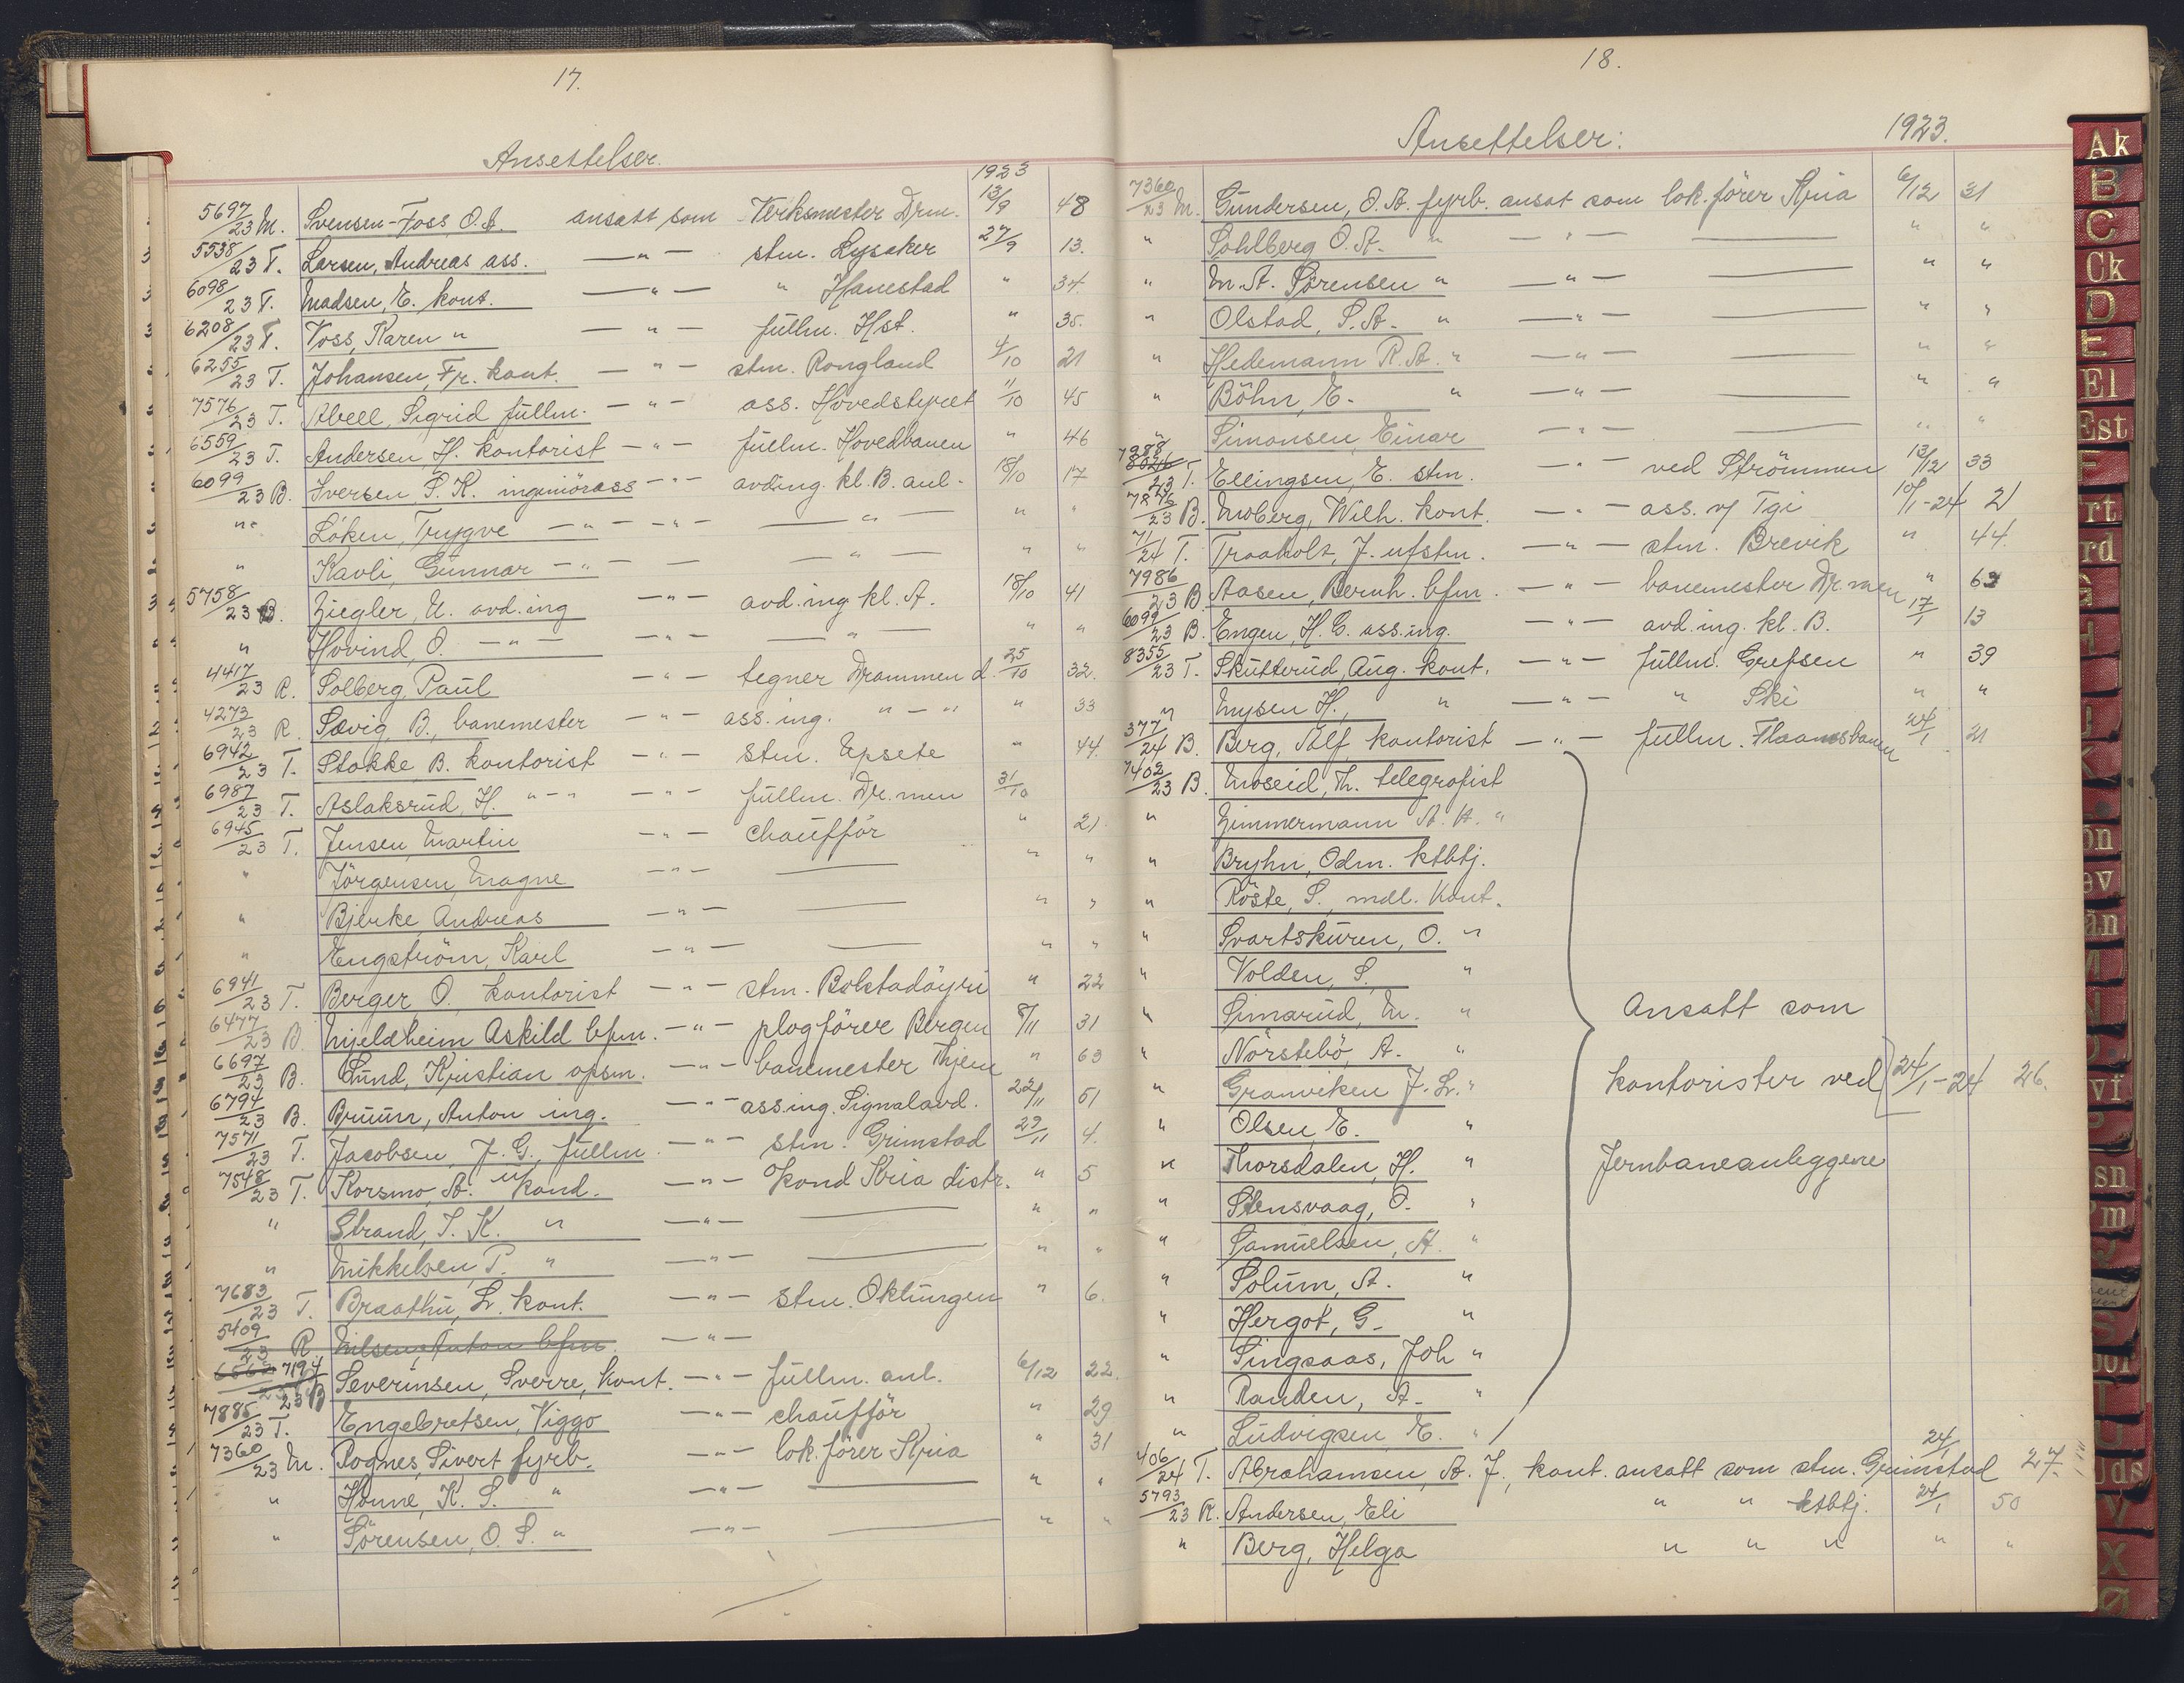 17.
Ansettelser.
1923
5697/23 M. Svensen-Foss, O.A. ansatt som Verksmester Drm. 13/9 48
5538/23 T. Larsen, Andreas ass. — " — stm. Lysaker 27/9 13.
6098/23 T. Madsen, E. kont. — " — " Hanestad " 34.
6208/23 T. Voss, Karen " — " — fullm. Hst. " 35.
6255/23 T. Johansen, Fr. kont. — " — stm. Rongland 4/10 21
7576/23 T. Abell, Sigrid fullm. — " — ass. Hovedstyret 11/10 45
6559/23 T. Andersen, H. kontorist — " — fullm. Hovedbanen " 46
6099/23 B. Iversen S. K. ingeniörass — " — avding. kl. B. anl. 18/10 17
" Löken, Trygve — " — — " — — " — " "
" Kavli, Gunnar — " — — — " — " "
5758/23 B. Ziegler, U. avd.ing — " — avd.ing kl. A. 18/10 41
" Hovind, O. — " — — " — — " — " "
4417/23 R. Solberg, Paul — " — tegner Drammen d. 25/10 32.
4273/23 R. Sævig, B., banemester — " — ass.ing. " — " " 33
6942/23 T. Stokke B. kontorist — " — stm. Upsete " 44.
6987/23 T. Aslaksrud, H. " — " — " — fullm. Dr.men 31/10
6945/23 T. Jensen, Martin — " — chaufför " 21
" Jörgensen, Magne — " — —— " "
" Bjerke, Andreas — " — —— " "
" Engström, Karl — " — —— " "
6941/23 T. Berger, O. kontorist — " — stm. Bolstadöyri " 22
6477/23 B. Mjeldheim Askild bfm. — " — plogförer Bergen 8/11 31
6697/23 B. Lund, Kristian opsm. — " — banemester Thjem " 63
6794/23 B. Bruun, Anton ing. — " — ass.ing. Signalavd. 22/11 51
7571/23 T. Jacobsen, J. G., fullm. — " — stm. Grimstad 29/11 4.
7548/23 T. Korsmo, A. ukond. — " — kond Kria distr. " 5
" Strand, T. K. " — " — —— " "
" Mikkelsen, P. " — " — —— " "
7683/23 T. Braathu, L. kont. — " — stm. Oklungen " 6.
5409/23 R Nilsen, Anton bfm. — " —
6562 7194/23 B Severinsen, Sverre, kont. — " — fullm. anl. 6/12 22.
7885/23 T. Engebretsen, Viggo — " — chaufför " 29
7360/23 M. Rognes, Sivert fyrb. — " — lok.förer Kria " 31
" Hönne, K. S. " — " — —— " "
" Sörensen, O. S. " — " — —— " "
18.
Ansettelser:
1923.
7360/23 M. Gundersen, O. A. fyrb. ansat som lok.förer Kria 6/12 31
" Sohlberg O. A. " — " — —— " "
" M. A. Sörensen " — " — —— " "
" Olstad, S. A. " — " — —— " "
" Hedemann R. A. " — " — —— " "
" Böhn, E. " — " — —— " "
" Simonsen, Einar — " — —— " "
7988 8026/23 T. Ellingsen, E. stm. — " — ved Strömmen 13/12 33
7876/23 B. Moberg, Wilh. kont. — " — ass. v/ Tgi 10/1-24 21
71/24 T. Traaholt, J. ufstm. — " — stm. Brevik " 44.
7986/23 B Aasen, Bernh. bfm. — " — banemester Dr.men " 63
6099/23 B. Engen, H. C. ass.ing. — " — avd.ing. kl. B. 17/1 13
8355/23 T. Skutterud, Aug. kont. — " — fullm. Grefsen " 39
" Mysen H., " — " — " Ski " "
377/24 B. Berg, Alf kontorist — " — fullm. Flaamsbanen 24/1 21
7402/23 B. Moseid, Th. telegrafist
" Zimmermann A. H. "
" Bryhn, Odm. ktbtj.
" Röste, S., mdl. kont.
" Svartskuren, O. "
" Volden, S., "
" Simarud, M. "
" Nörstebö, A. "
" Granviken J. L. "
" Olsen, E. "
" Thorsdalen, H. "
" Stensvaag, O. "
" Samuelsen, A. "
" Solum, A. "
" Hergot, G. "
" Singsaas, Joh "
" Randen, A. "
" Ludvigsen, E. "
Ansatt som
kontorister ved 24/1-24 26.
Jernbaneanleggene
406/24 T. Abrahamsen, A. J., kont. ansatt som stm. Grimstad 24/1 27.
5793/23 R. Andersen, Eli " " ktbtj. 24/1 50
" Berg, Helga " " " " "
Ak
B
C
Ck
D
E
El
Est
F
rt
rd
G
H
J
K
ön
ev
än
M
N
vi
sn
m
S
T
U
Uds
V
X
Ø